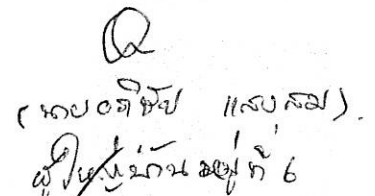 (นายอภิชัย แสบสม).
ผู้ใหญ่บ้านหมู่ที่ 6